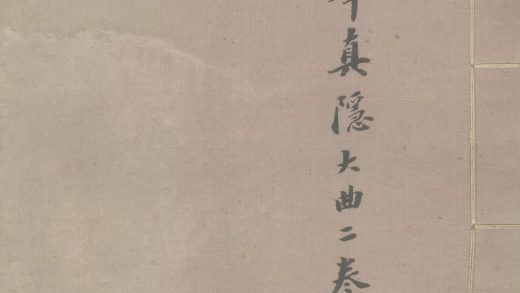 真隱大曲二卷